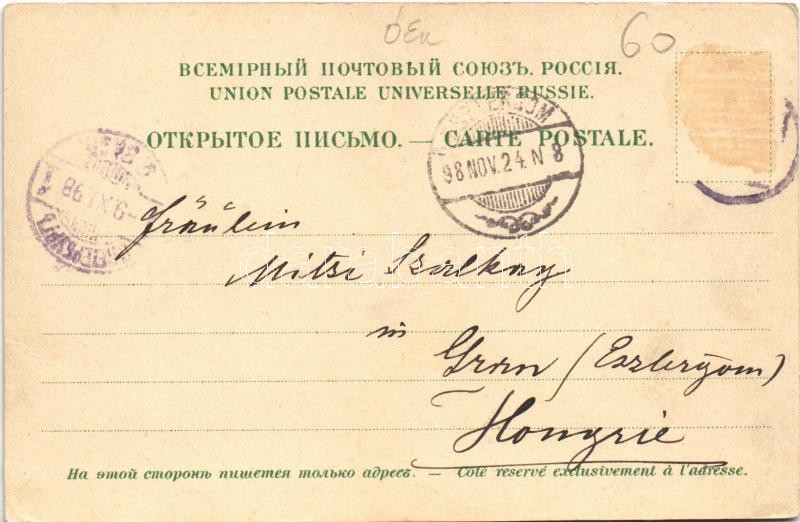 60
ВСЕМІРНЫЙ ПОЧТОВЫЙ СОЮЗЪ. РОССІЯ.
UNION POSTALE UNIVERSELLE RUSSIE.
ОТКРЫТОЕ ПИСЬМО. — CARTE POSTALE.
98 NOV. 24. N 8
9.XI.98
Fräulein
Mitzi Szalkay
in
Gran (Esztergom)
Hongrie
На этой сторонѣ пишется только адресъ. — Côté réservé exclusivement à l'adresse.